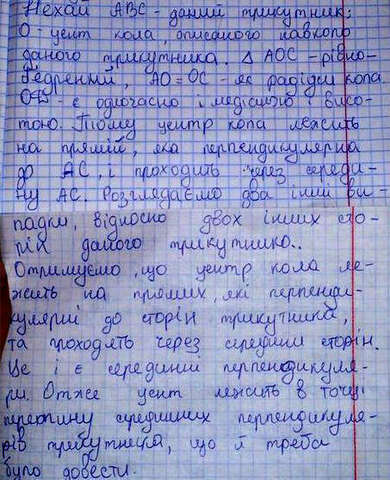 Нехай АВС - даний трикутник;
О - цент кола, описаного навколо
даного трикутника. Δ АОС - рівно-
бедрений, АО = ОС - як радіуси кола
OD - є одночасно і медіаною і висо-
тою. Тому центр кола лежить
на прямій, яка перпендикулярна
до АС, і проходить через середи-
ну АС. Розглядаємо два інші ви-
падки, відносно двох інших сто-
рін даного трикутника..
Отримуємо, що центр кола ле-
жить на прямих, які перпенди-
кулярні до сторін трикутника,
та проходять через середини сторін.
Це і є серединні перпендикуля-
ри. Отже цент лежить в точці
перетину серединних перпендикуля-
рів трикутника, що й треба
було довести.